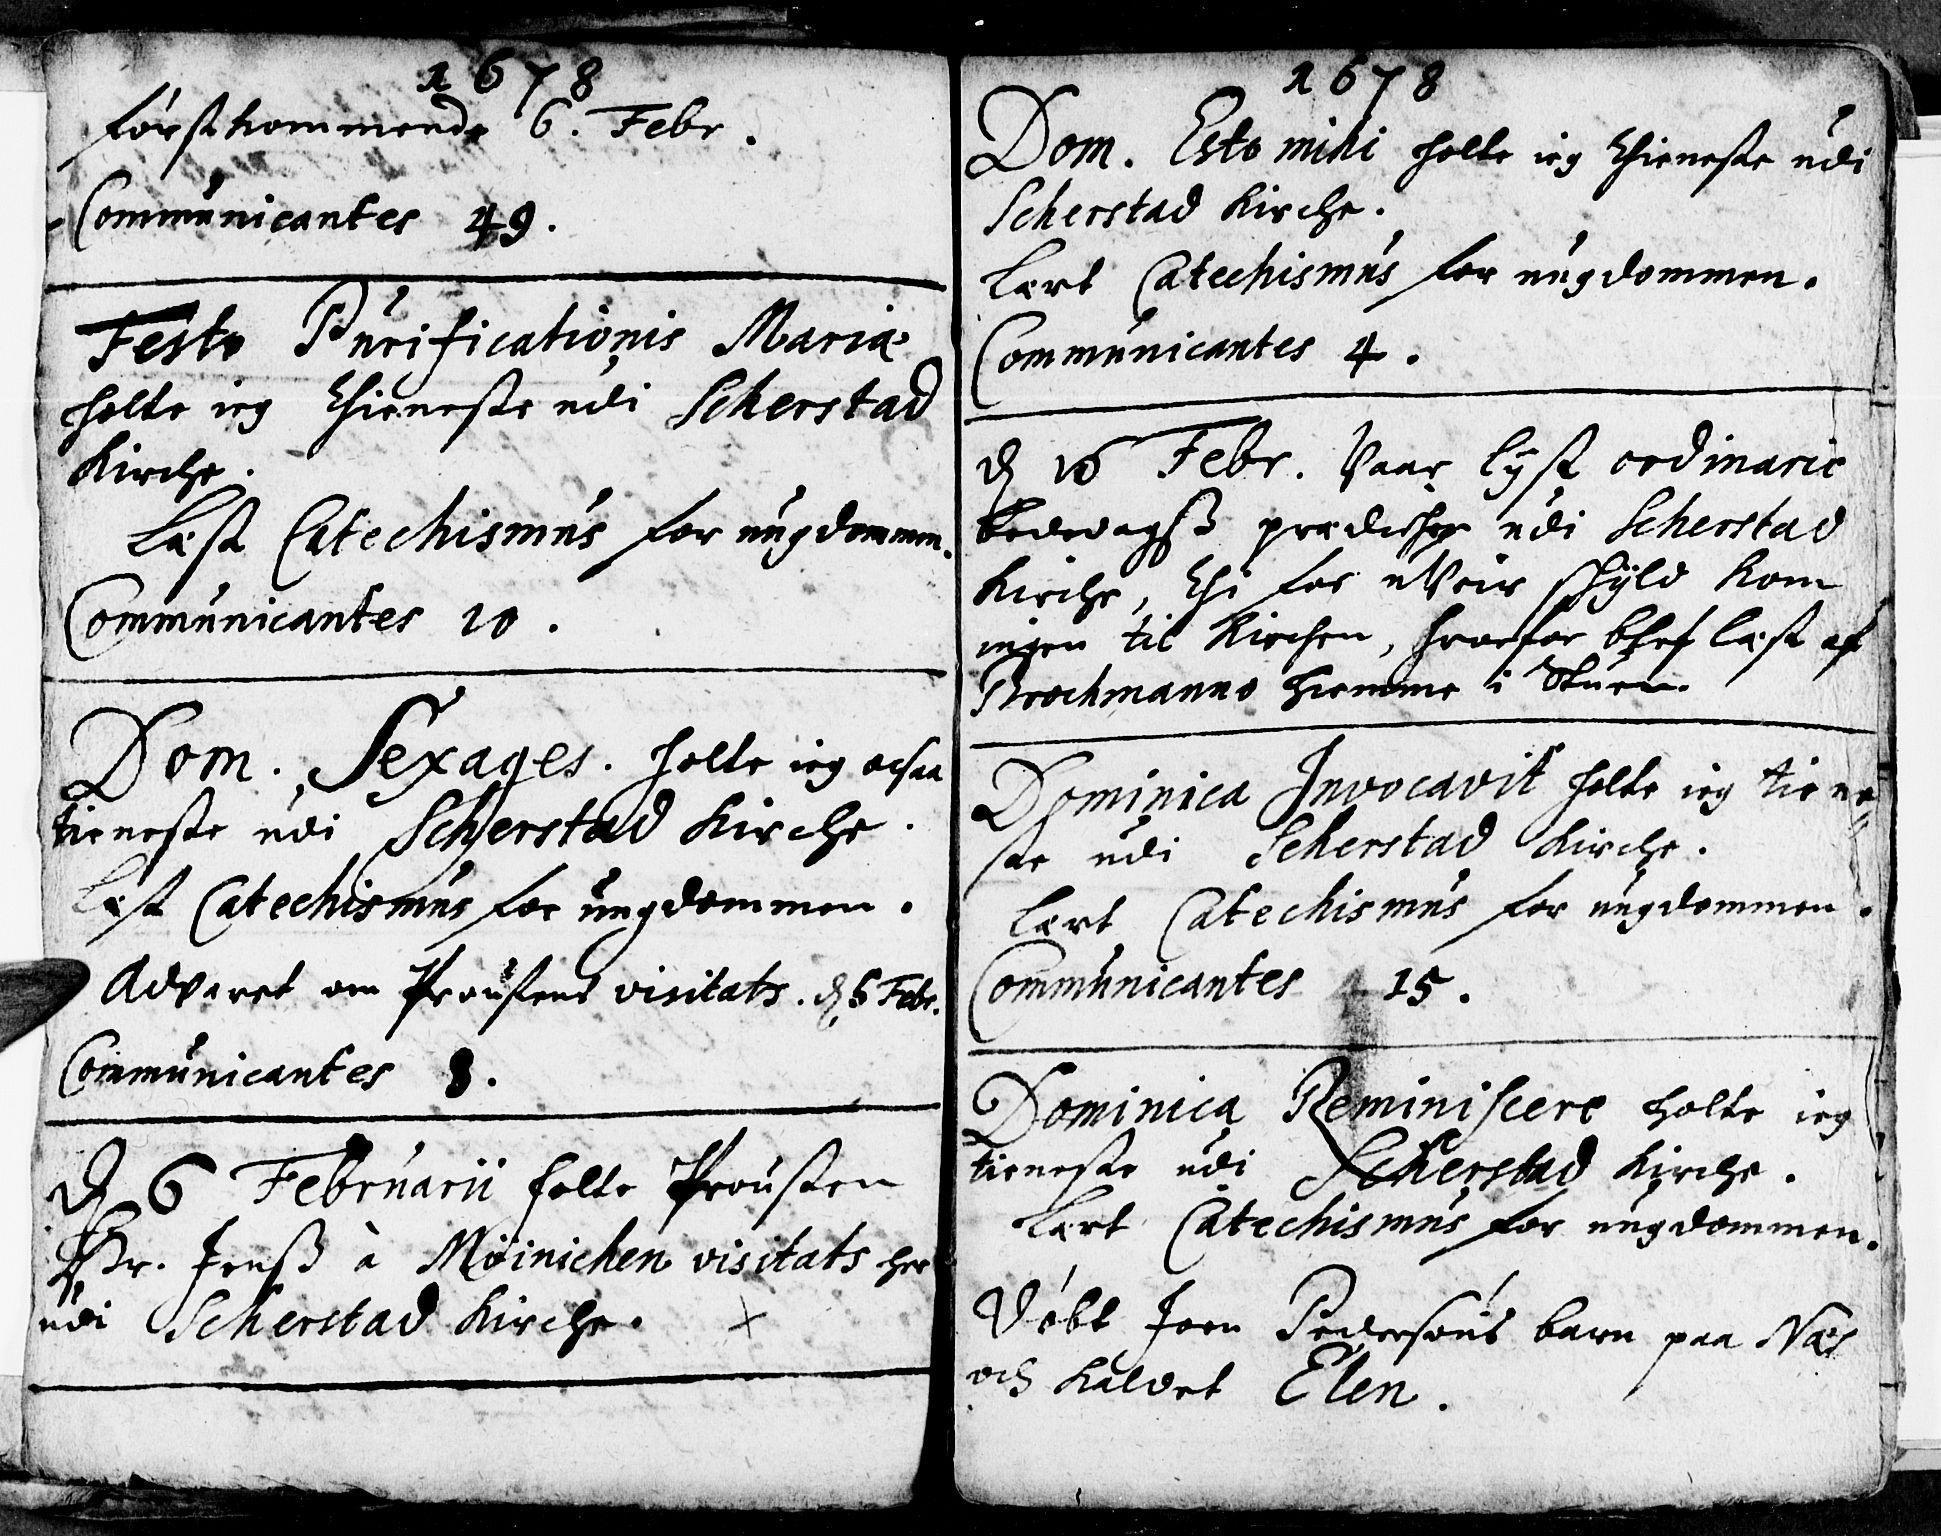 1678
førstkommende 6. Febr.
Communicantes 49.
Festo Purificationis Mariæ
holte ieg thieneste udi Scherstad
Kirche.
Læst Catechismus for ungdommen.
Communicantes 10.
Dom. Sexages. holte ieg ochsaa
tieneste udi Scherstad Kirche.
Læst Catechismus for ungdommen.
Advaret om Proustens visitats. d. 6 Febr.
Communicantes 8.
d. 6 Februarii holte Prousten
Hr. Jenß à Möinichen visitats her
udi Scherstad Kirche.
1678
Dom. Esto mihi holte ieg thieneste udi
Scherstad Kirche.
Lært Catechismus for ungdommen.
Communicantes 4.
d. Febr. Vaar lyst ordinarie
bededagß prædichen udi Scherstad
Kirche, thi for uveir skyld kom
ingen til Kirchen, hvorfor blef læst af
Brochmanno hiemme i Stuen.
Dominica Invocavit holte ieg tiene-
ste udi Scherstad Kirche.
Lært Catechismus for ungdommen.
Communicantes 15.
Dominica Reminiscere holte ieg
tieneste udi Scherstad Kirche.
Lært Catechismus for ungdommen.
Døbt Joen Pedersøns barn paa Næs
och kaldet Elen.